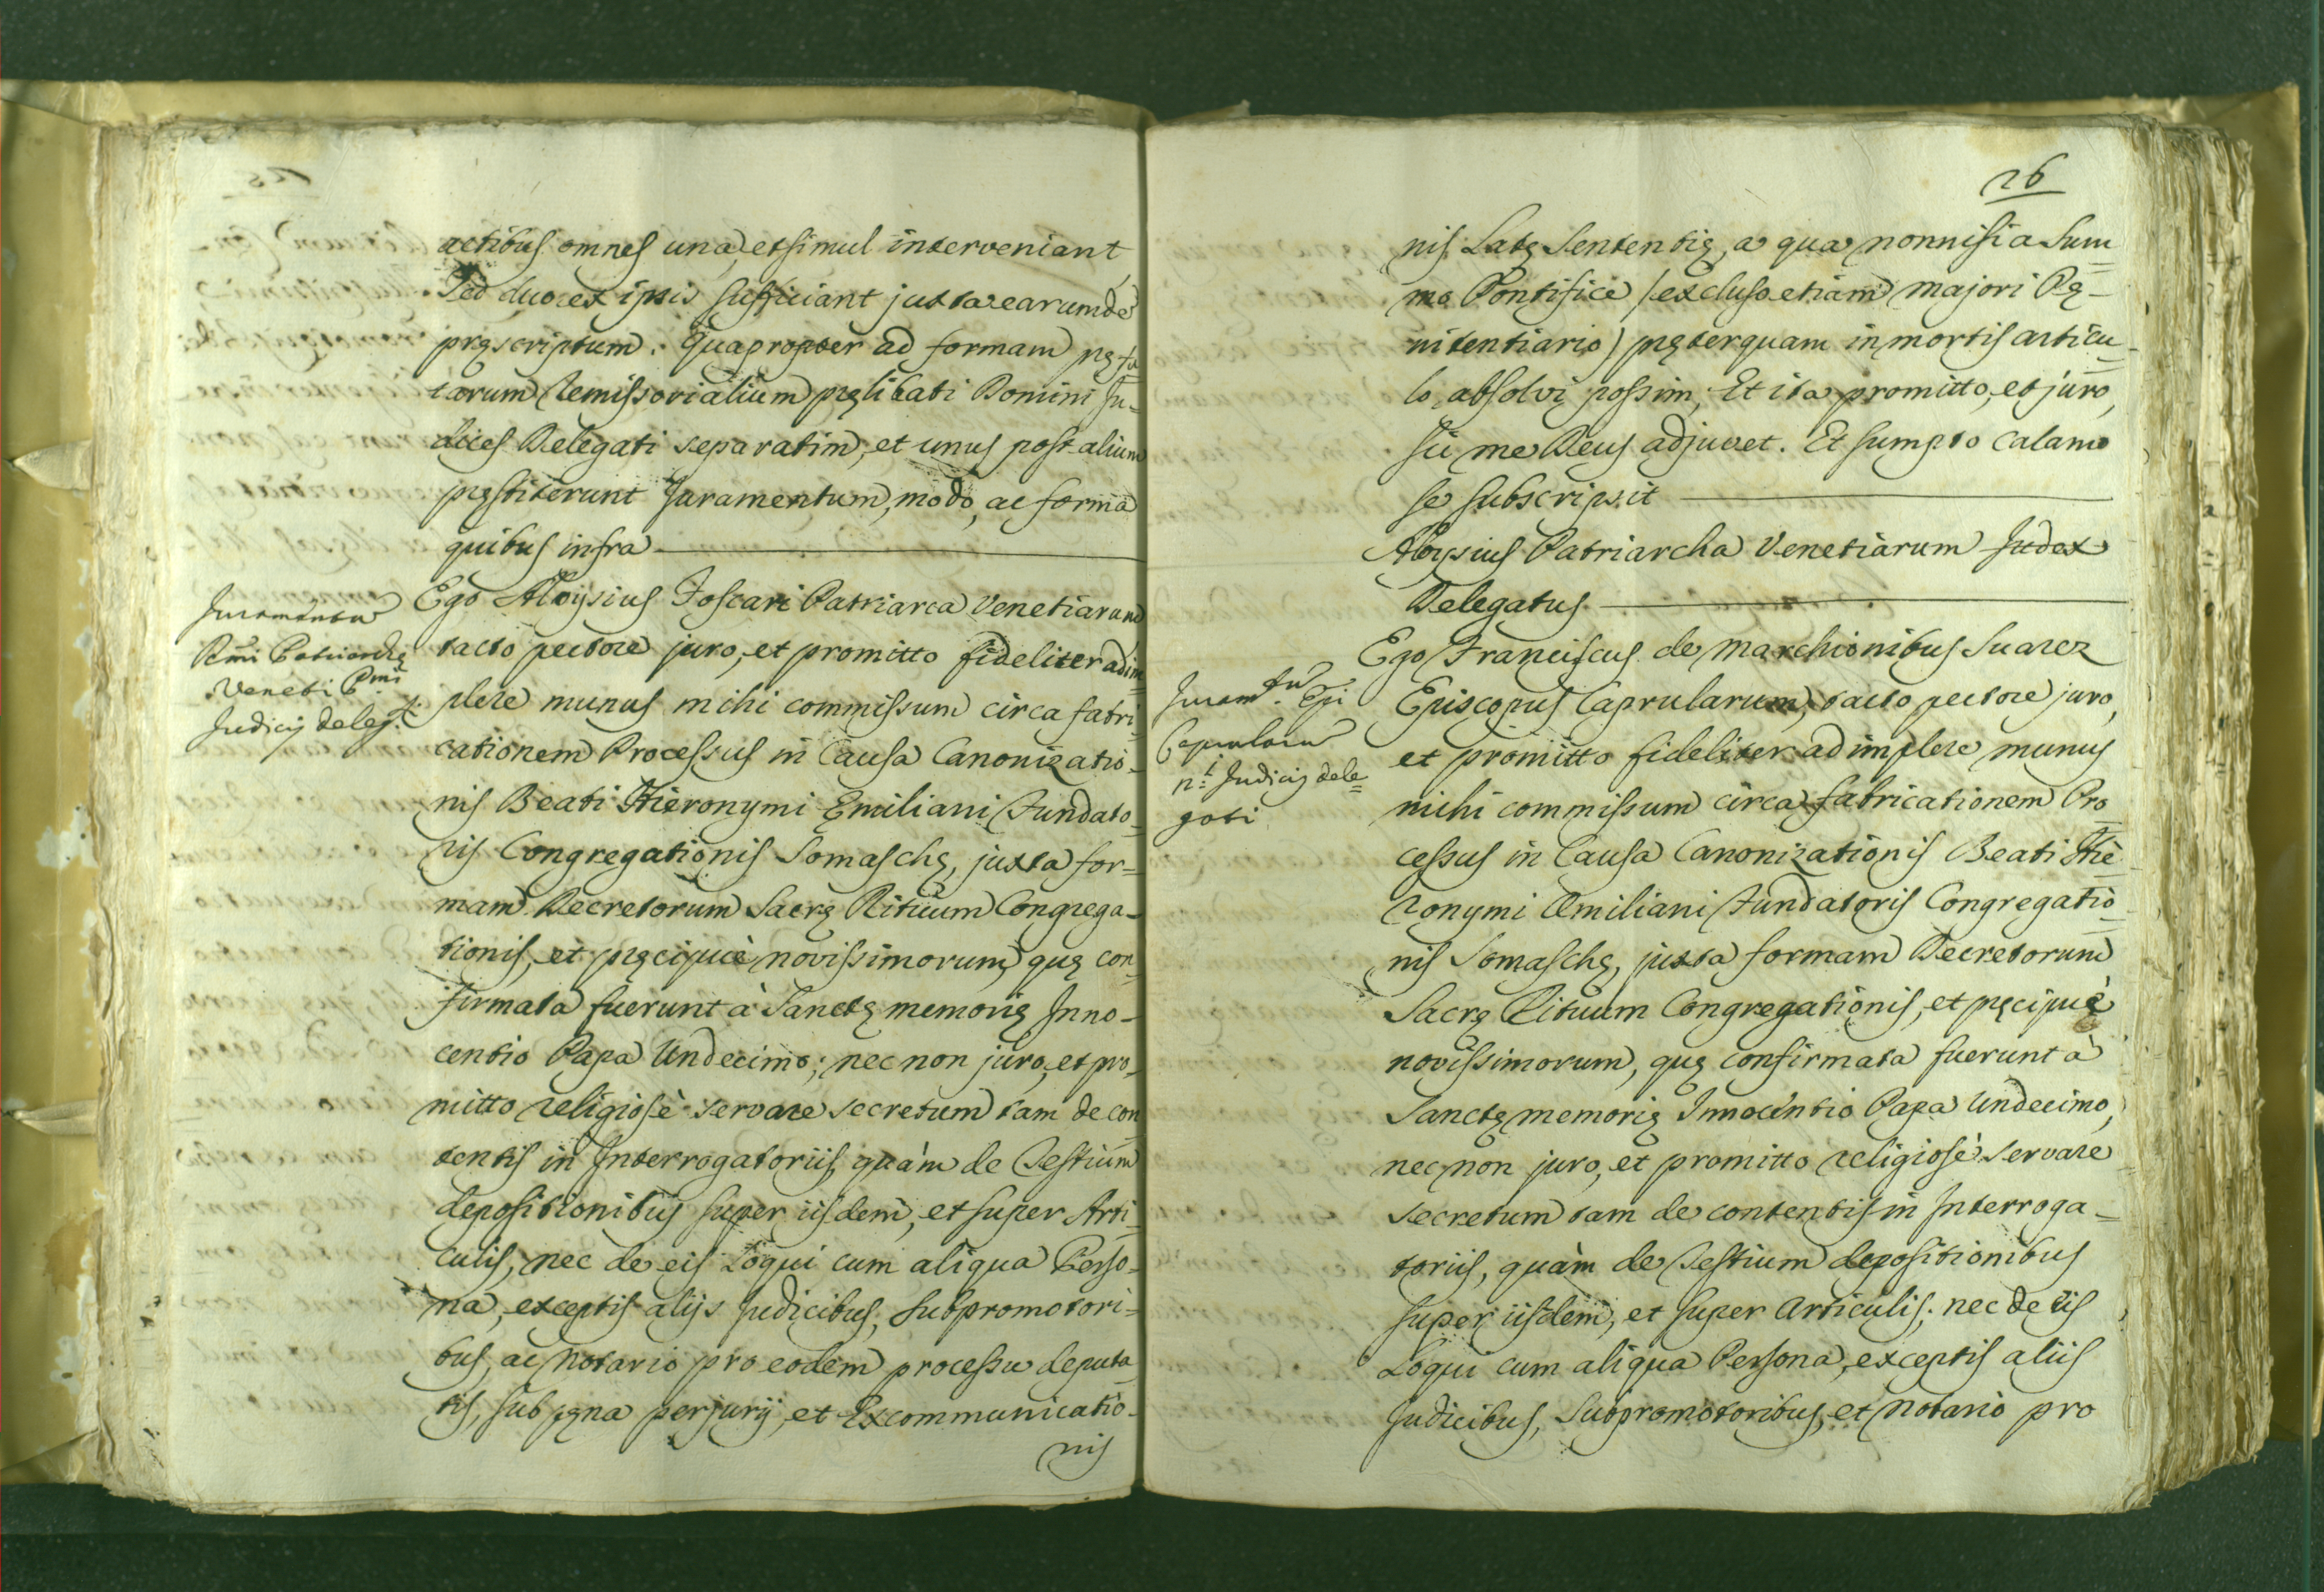 actibus omnes una, et simul interveniant,
sed duo ex ipsis sufficiant juxta earumdẽ
pręscriptum. Quapropter ad formam pręfa
tarum Remissorialium pręlibati Domini Ju-
dices Delegati separatim, et unus post alium
pręstiterunt Juramentum, modo, ac forma
quibus infra
Juramentum
Rmi Patriarchę
Veneti Pmi
Judicij deleg.ti
Ego Aloysius Foscari Patriarca Venetiarum
tacto pectore juro, et promitto fideliter adim
plere munus mihi commissum circa fabri
cationem Processus in Causa Canonizatio-
nis Beati Hieronymi Emiliani Fundato-
ris Congregationis Somaschę, juxta for=
mam Decretorum Sacrę Rituum Congrega-
tionis, et pręcipuè novissimorum, quę con
firmata fuerunt à Sanctę memorię Inno-
centio Papa Undecimo; nec non juro, et pro-
mitto religiosè servare secretum tam de con
tentis in Interrogatoriis, quàm de Testium
depositionibus super iisdem, et super Arti-
culis, nec de eis loqui cum aliqua Perso-
na, exceptis alijs Judicibus, Subpromotori=
bus, ac Notario pro eodem processu deputa
tis, sub pęna perjurij, et Excommunicatio-
nis
26
nis Latę Sententię, a qua nonnisi a Sum
mo Pontifice /excluso etiam majori Pę-
nitentiario) pręterquam in mortis articu-
lo, absolvi possim, Et ita promitto, et juro,
sic me Deus adjuvet. Et sumpto calamo
se subscripsit
Aloysius Patriarcha Venetiarum Judex
Delegatus
Juram.tu Epi
Caprularu
n.i Judicis dele=
gati
Ego Franciscus de Marchionibus Suarez
Episcopus Caprularum, tacto pectore juro,
et promitto fideliter adimplere munus
mihi commissum circa fabricationem Pro
cessus in Causa Canonizationis Beati Hie
ronymi Æmiliani Fundatoris Congregatio
nis Somaschę, juxta formam Decretorum
Sacrę Rituum Congregationis, et pręcipuè
novissimorum, quę confirmata fuerunt à
Sanctę memorię Innocentio Papa Undecimo,
nec non juro, et promitto religiosè servare
secretum tam de contentis in Interroga-
toriis, quàm de Testium depositionibus
super iisdem, et super Articulis; nec de iis
Loqui cum aliqua Persona, exceptis aliis
Judicibus, Subpromotoribus, et Notario pro